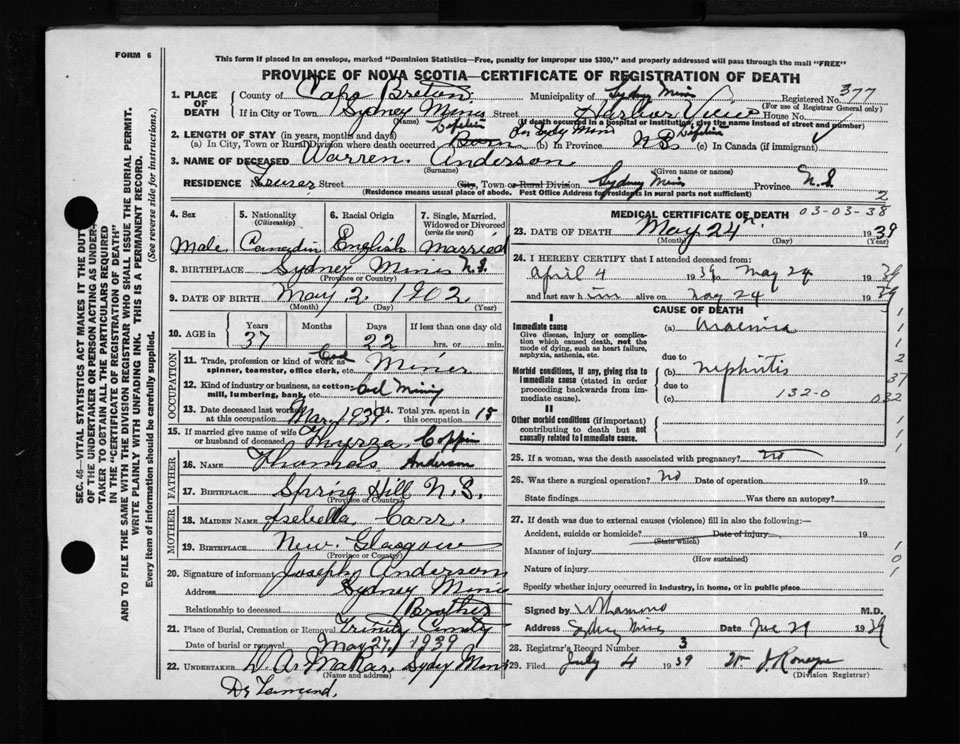 FORM 6
This form if placed in an envelope, marked "Dominion Statistics—Free, penalty for improper use $300," and properly addressed will pass through the mail "FREE"
PROVINCE OF NOVA SCOTIA—CERTIFICATE OF REGISTRATION OF DEATH
SEC. 46—VITAL STATISTICS ACT MAKES IT THE DUTY
OF THE UNDERTAKER OR PERSON ACTING AS UNDER-
TAKER TO OBTAIN ALL THE PARTICULARS REQUIRED
IN THE "CERTIFICATE OF REGISTRATION OF DEATH"
AND TO FILE THE SAME WITH THE DIVISION REGISTRAR WHO SHALL ISSUE THE BURIAL PERMIT.
WRITE PLAINLY WITH UNFADING INK. THIS IS A PERMANENT RECORD.
Every item of information should be carefully supplied. (See reverse side for instructions.)
1. PLACE OF DEATH County of Cape Breton Municipality of Sydney Mines Registered No. 377
(For use of Registrar General only)
If in City or Town Sydney Mines Street Harbor View House No.
(Name) (If death occurred in a hospital or institution, give the name instead of street and number)
2. LENGTH OF STAY (in years, months and days)
(a) In City, Town or Rural Division where death occurred Born (b) In Province N.S. (c) In Canada (if immigrant)
3. NAME OF DECEASED Warren Anderson
(Surname) (Given name or names)
RESIDENCE Street City, Town or Rural Division Sydney Mines Province N.S.
(Residence means usual place of abode. Post Office Address for residents in rural parts not sufficient) 2
4. Sex 5. Nationality (Citizenship) 6. Racial Origin 7. Single, Married, Widowed or Divorced (write the word)
Male Canadin English Married
8. BIRTHPLACE Sydney Mines N.S.
(Province or Country)
9. DATE OF BIRTH May 2 1902
(Month) (Day) (Year)
10. AGE in Years Months Days If less than one day old
37 22 hrs. or min.
OCCUPATION
11. Trade, profession or kind of work as spinner, teamster, office clerk, etc. Coal Miner
12. Kind of industry or business, as cotton-mill, lumbering, bank, etc. Coal Mining
13. Date deceased last worked at this occupation Mar 1939 14. Total yrs. spent in this occupation 18
15. If married give name of wife or husband of deceased Thyrza Coppin
FATHER
16. NAME Thomas Anderson
17. BIRTHPLACE Spring Hill N.S.
(Province or Country)
MOTHER
18. MAIDEN NAME Isebella Carr.
19. BIRTHPLACE New Glasgow
(Province or Country)
20. Signature of informant Joseph Anderson
Address Sydney Mines
Relationship to deceased Brother
21. Place of Burial, Cremation or Removal Trinity
Date of burial or removal May 27, 1939
22. UNDERTAKER Sydney Mines
(Name and address)
MEDICAL CERTIFICATE OF DEATH 03-03-38
23. DATE OF DEATH May 24th 1939
(Month) (Day) (Year)
24. I HEREBY CERTIFY that I attended deceased from:
April 4 1939 to May 24 1939
and last saw h im alive on May 24 1939
CAUSE OF DEATH
I
Immediate cause (a) Uraemia
Give disease, injury or complication which caused death, not the mode of dying, such as heart failure, asphyxia, asthenia, etc.
due to
Morbid conditions, if any, giving rise to immediate cause (stated in order proceeding backwards from immediate cause). (b) nephritis
due to
(c) 132-0 032
II
Other morbid conditions (if important) contributing to death but not causally related to immediate cause.
25. If a woman, was the death associated with pregnancy? no
26. Was there a surgical operation? no Date of operation 19
State findings Was there an autopsy?
27. If death was due to external causes (violence) fill in also the following:—
Accident, suicide or homicide? Date of injury 19
(State which)
Manner of injury
(How sustained)
Nature of injury
Specify whether injury occurred in industry, in home, or in public place
Signed by M.D.
Address Sydney Mines Date June 29 1939
28. Registrar's Record Number 3
29. Filed July 4 1939
(Division Registrar)